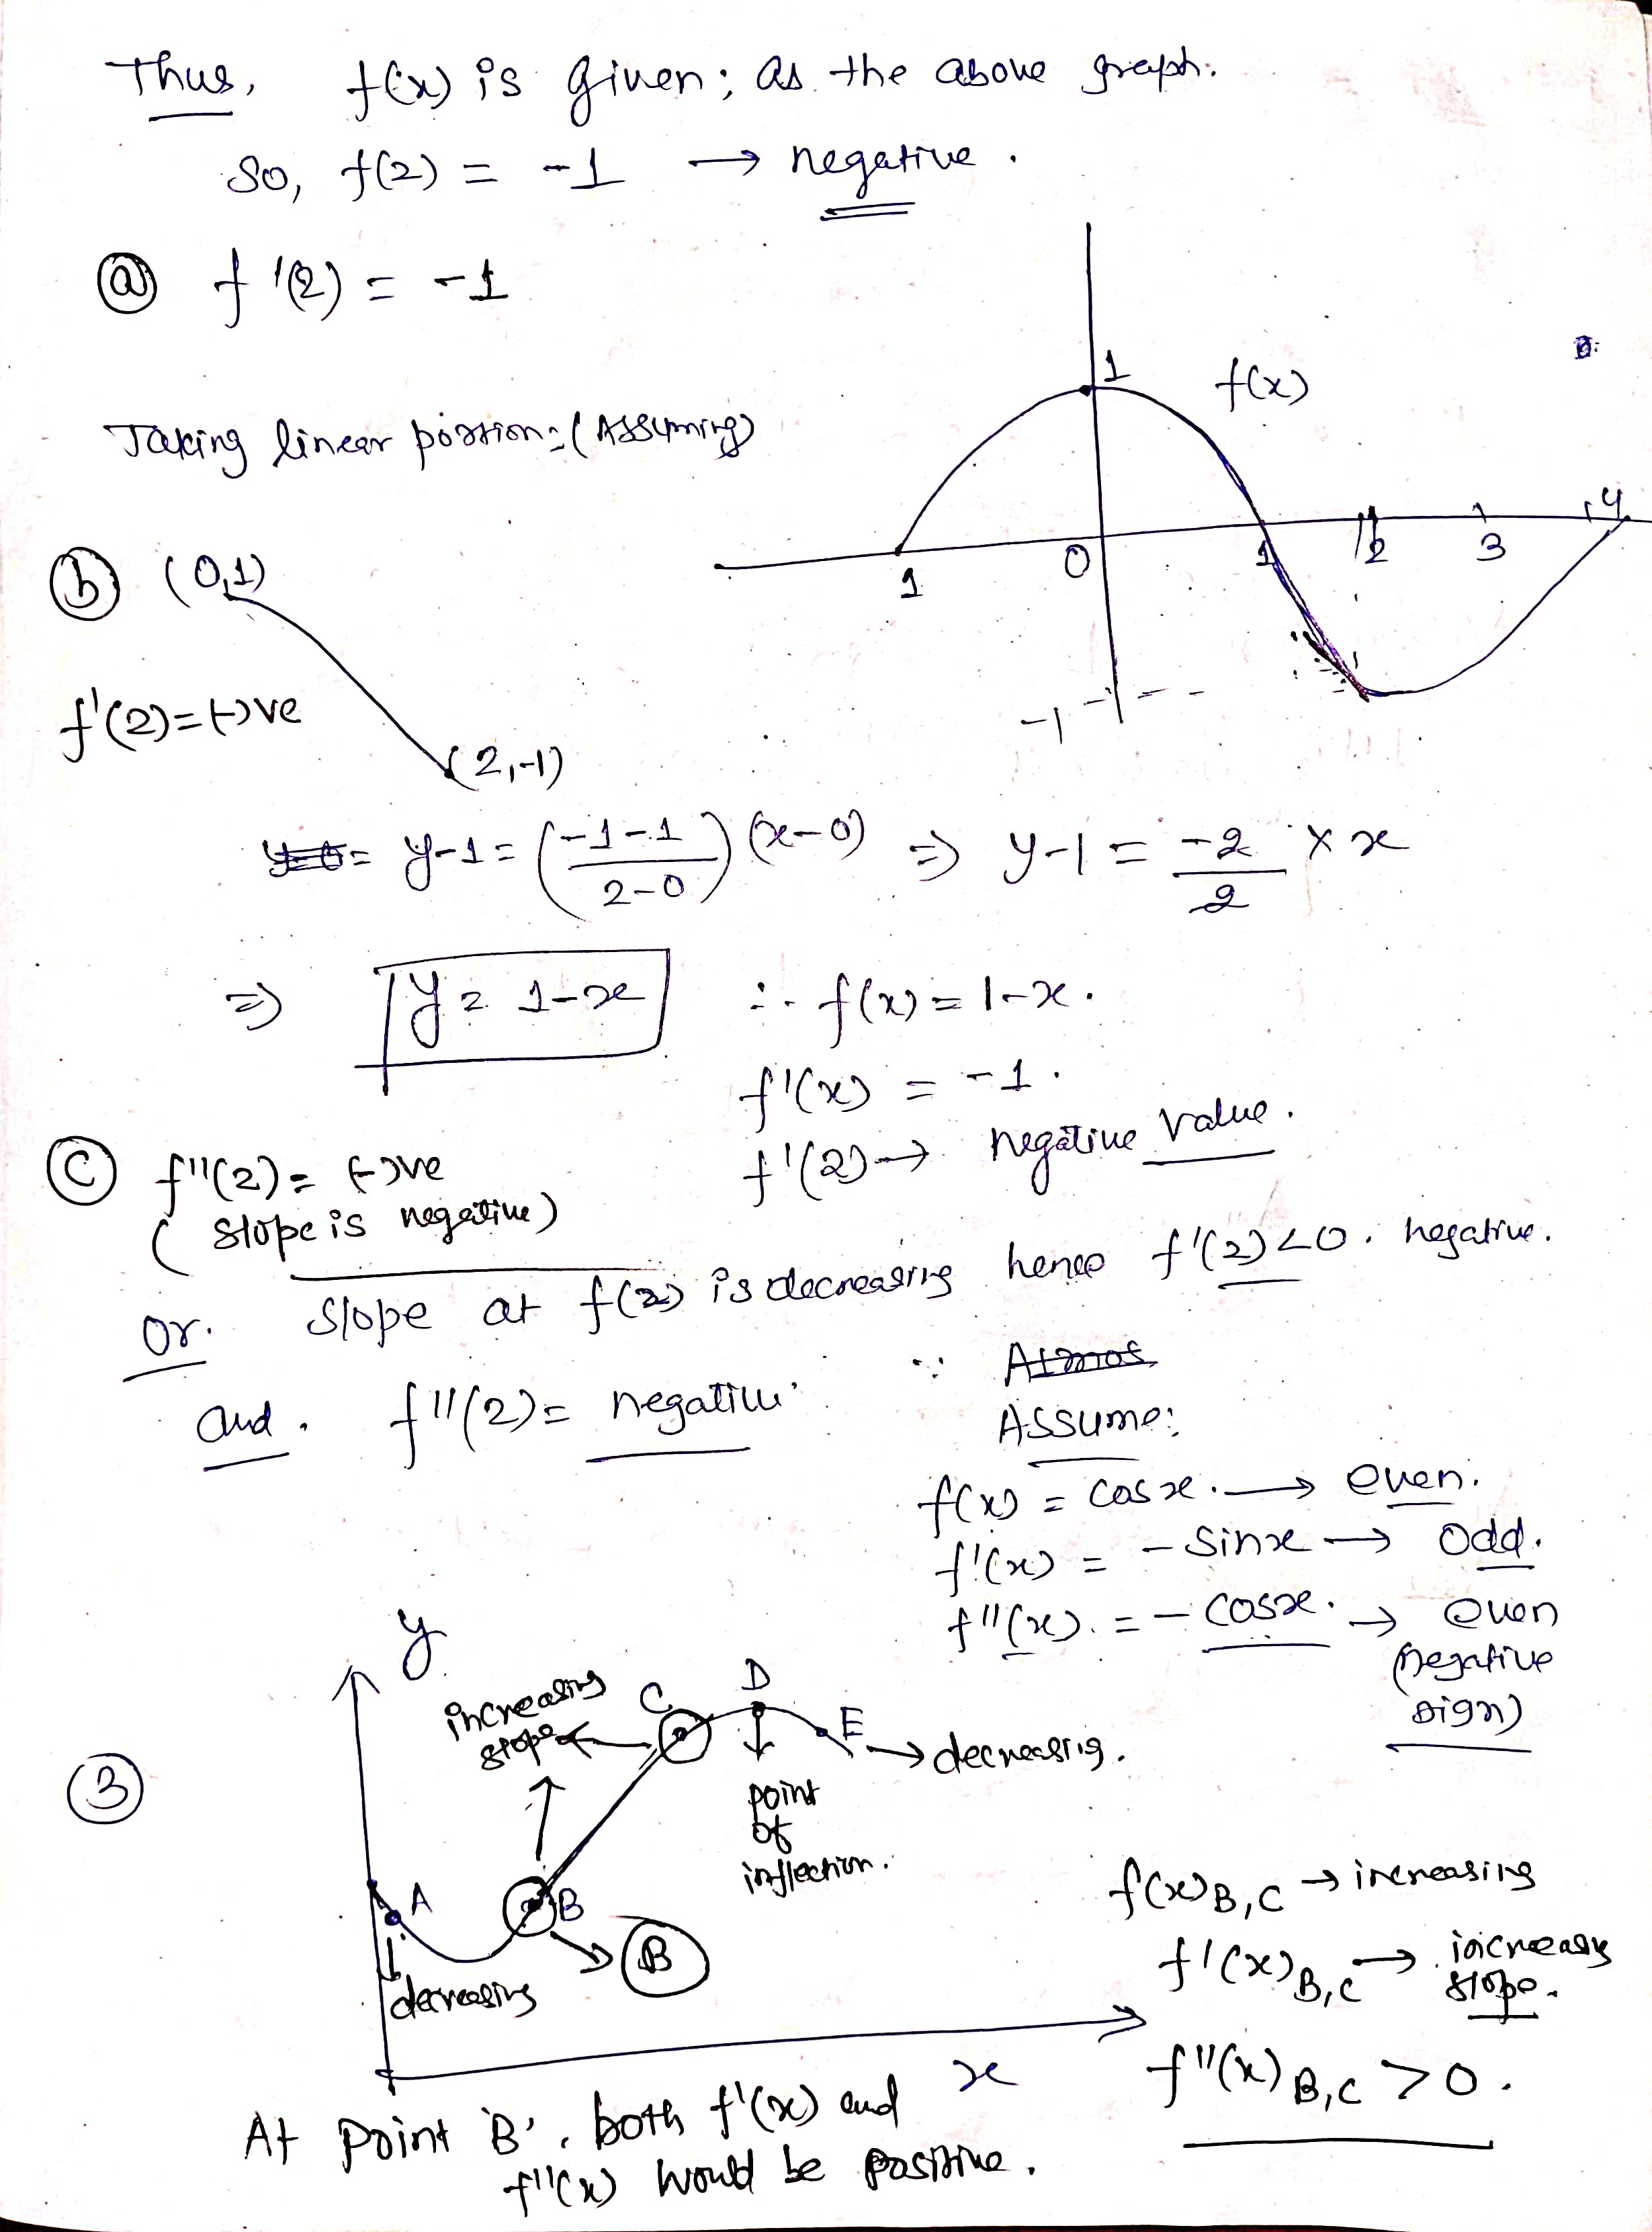 Thus, f(x) is given; as the above graph.
So, f(2) = -1 → negative.
(a) f'(2) = -1
1
f(x)
Taking linear portion: (Assuming)
1 0 1 2 3 4
-1
(b) (0,1)
f'(2) = (-)ve
(2,-1)
y-1 = (-1-1 / 2-0) (x-0) ⇒ y-1 = -2/2 × x
⇒ y = 1-x ∴ f(x) = 1-x.
f'(x) = -1.
f'(2) → negative value.
(c) f''(2) = (-)ve
(slope is negative)
Or. Slope at f(2) is decreasing hence f'(2) < 0. negative.
and. f''(2) = negative
∵ Assume:
f(x) = cos x. → even.
f'(x) = - sin x → odd.
f''(x). = - cos x. → even
(negative
sign)
(3)
y
increasing
slope
C
D
E → decreasing.
point
of
inflection.
A
B
(B)
decreasing
x
f(x) B,C → increasing
f'(x) B,C → increasing
slope.
f''(x) B,C > 0.
At point 'B', both f'(x) and
f''(x) would be positive.